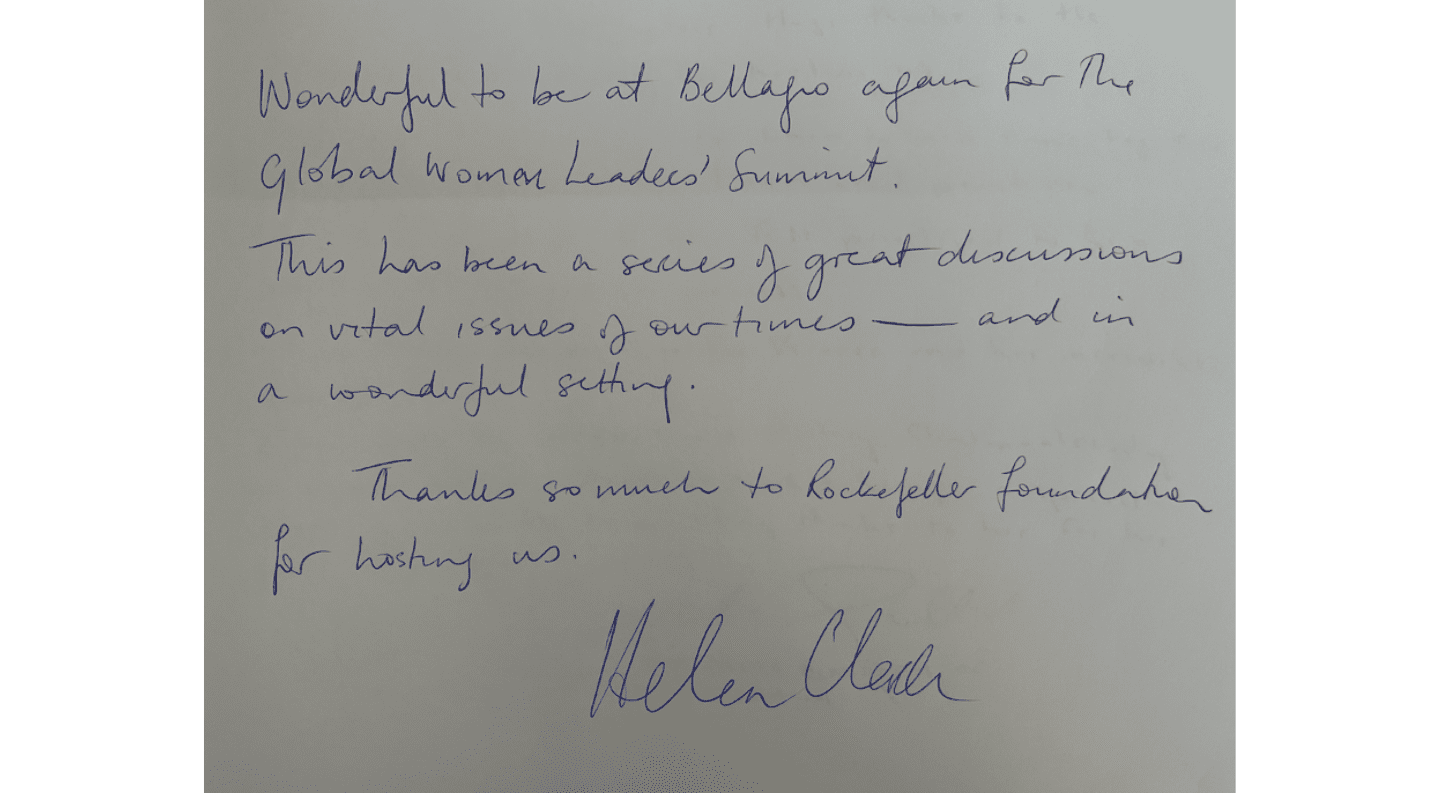 Wonderful to be at Bellagio again for the
Global Women Leaders' Summit.
This has been a series of great discussions
on vital issues of our times — and in
a wonderful setting.
Thanks so much to Rockefeller Foundation
for hosting us.
Helen Clark